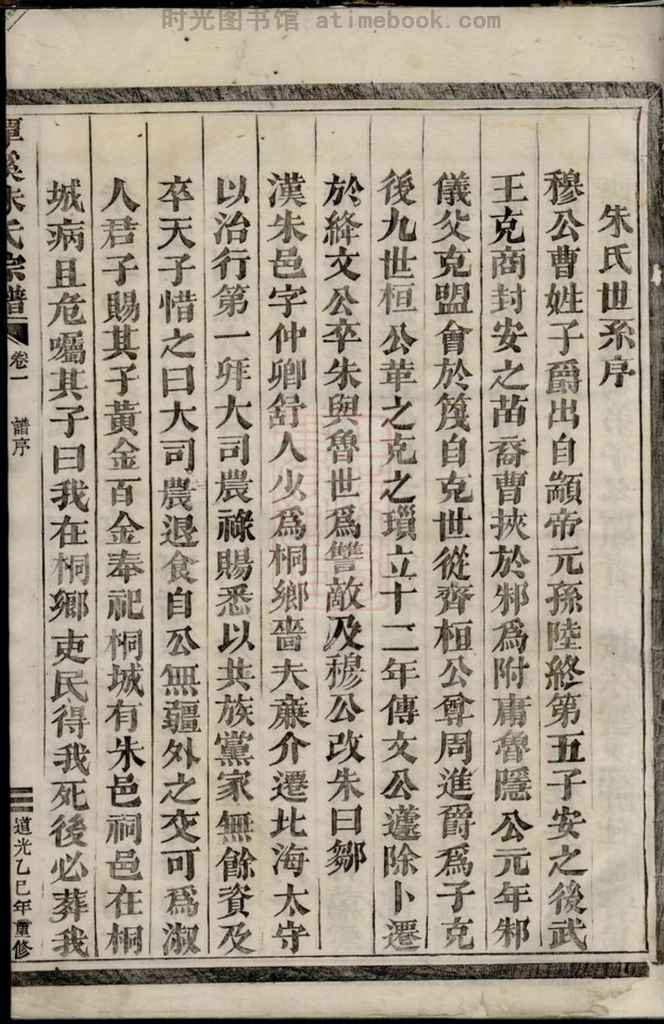 时光图书馆 atimebook.com
朱氏世系序
穆公曹姓子爵出自顓帝元孫陸終第五子安之後武
王克商封安之苗裔曹挾於邾爲附庸魯隱公元年邾
儀父克盟會於篾自克世從齊桓公尊周進爵爲子克
後九世桓公革之克之瑣立十二年傳文公蘧除卜遷
於絳文公卒朱與魯世爲讐敵及穆公改朱曰鄒
漢朱邑字仲卿舒人少爲桐鄉嗇夫亷介遷北海太守
以治行第一拜大司農祿賜悉以共族黨家無餘資及
卒天子惜之曰大司農退食自公無疆外之交可爲淑
人君子賜其子黃金百金奉祀桐城有朱邑祠邑在桐
城病且危囑其子曰我在桐鄉吏民得我死後必葬我
潭溪朱氏宗譜 卷一 譜序 道光乙巳年重修